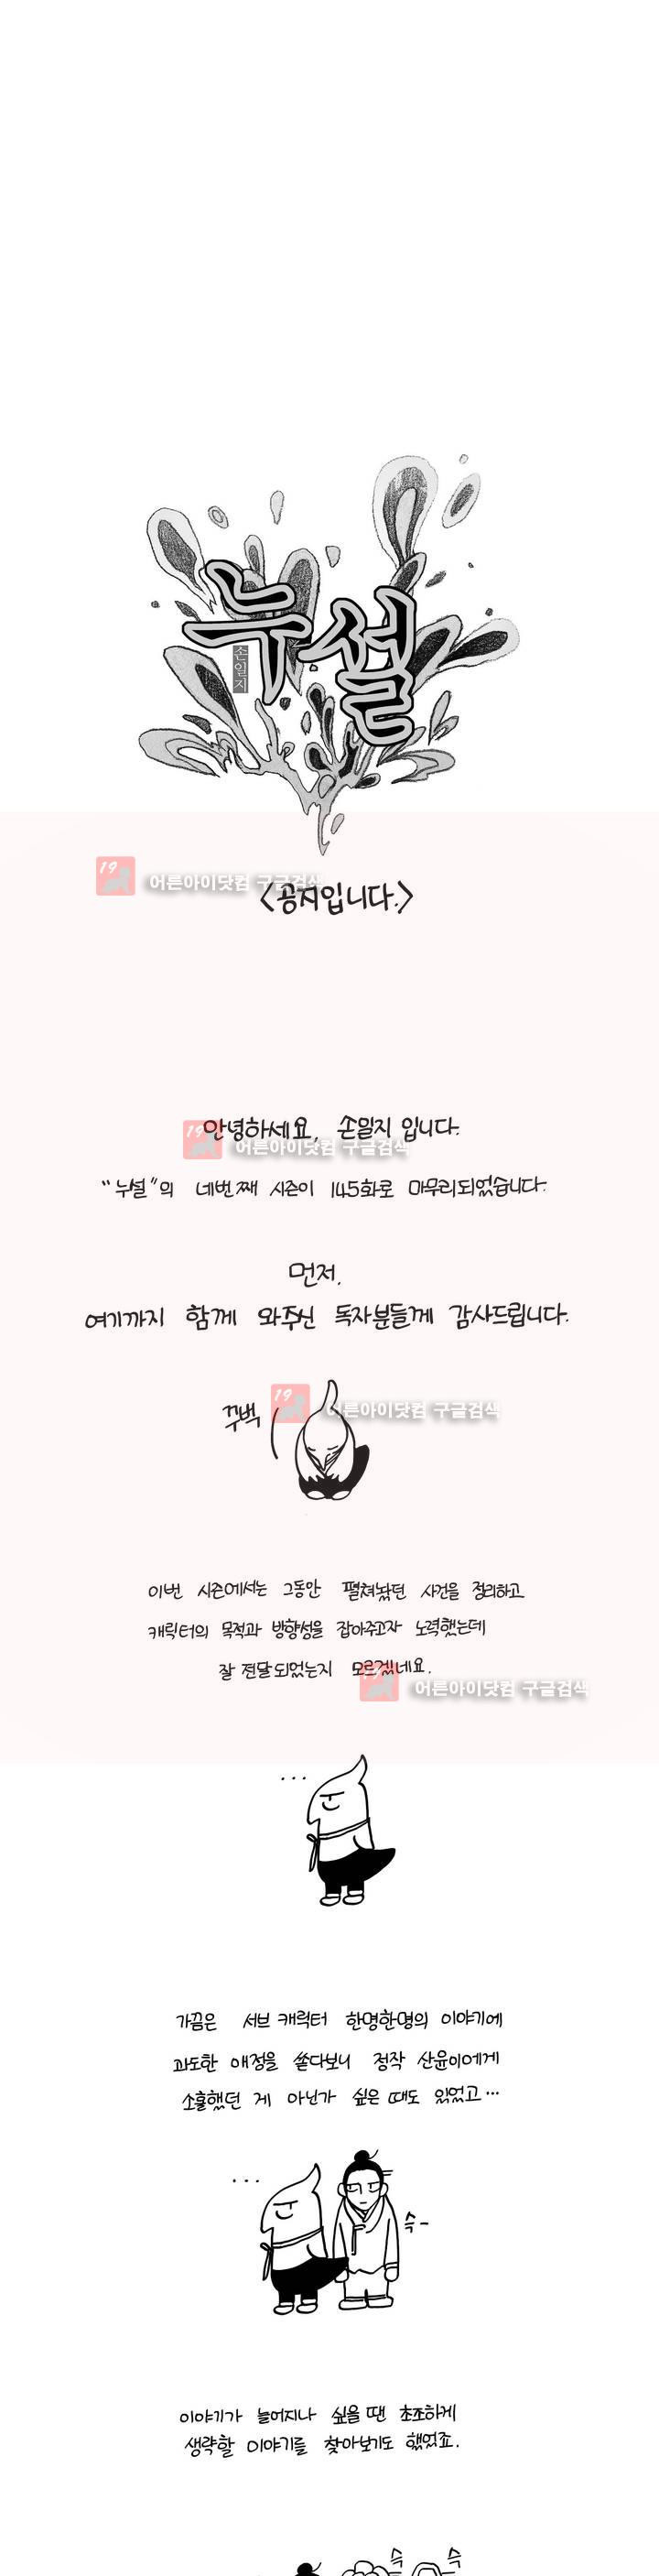 누설
손일지
19 어른아이닷컴 구글검색
<공지입니다.>
안녕하세요, 손일지 입니다.
19 어른아이닷컴 구글검색
"누설"의 네번째 시즌이 145화로 마무리되었습니다.
먼저.
여기까지 함께 와주신 독자분들께 감사드립니다.
꾸벅
19 어른아이닷컴 구글검색
이번 시즌에서는 그동안 펼쳐놨던 사건을 정리하고
캐릭터의 목적과 방향성을 잡아주고자 노력했는데
잘 전달되었는지 모르겠네요.
19 어른아이닷컴 구글검색
...
가끔은 서브 캐릭터 한명한명의 이야기에
과도한 애정을 쏟다보니 정작 산윤이에게
소홀했던 게 아닌가 싶은 때도 있었고...
...
슥-
이야기가 늘어지나 싶을 땐 초조하게
생략할 이야기를 찾아보기도 했었죠.
슥 슥